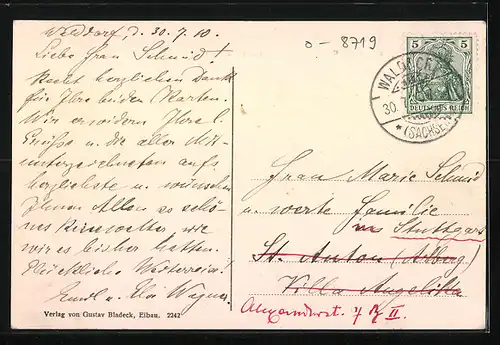 Walddorf, d. 30. 7. 10.
Liebe Frau Schmid!
Recht herzlichen Dank
für Ihre beiden Karten.
Wir erwidern Ihre l.
Grüße u. die aller Mit-
unterzeichneten aufs
herzlichste u. wünschen
Ihnen Allen so schö-
nes Reisewetter wie
wir es bisher hatten.
Glückliche Weiterreise!
Emil u. Wagner.
Verlag von Gustav Bladeck, Eibau. 2242
0 - 8719
5 5
DEUTSCHES REICH
WALDDORF
30. 7.
* (SACHSEN)
Frau Marie Schmid
u. werte Familie
Stuttgart
St. Anton (Arlberg)
Villa Angelika
Alexanderst. II.